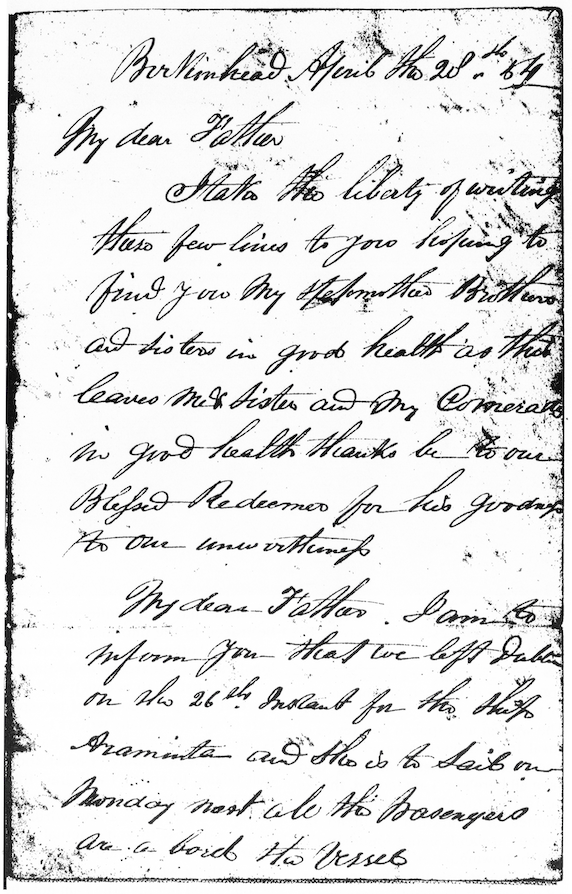 Birkinhead April the 28th 64
My dear Father
I take the liberty of writing
these few lines to you hoping to
find you My Stepmother Brothers
and sisters in good health as this
leaves me & sister and My Comerades
in good health thanks be to our
Blessed Redeemer for his goodness
to our unworthiness
My dear Father. I am to
inform you that we left Dublin
on the 26th Instant for the Ship
Araminta and she is to Sail on
Monday next all the Pasengers
are a bord the Vessel